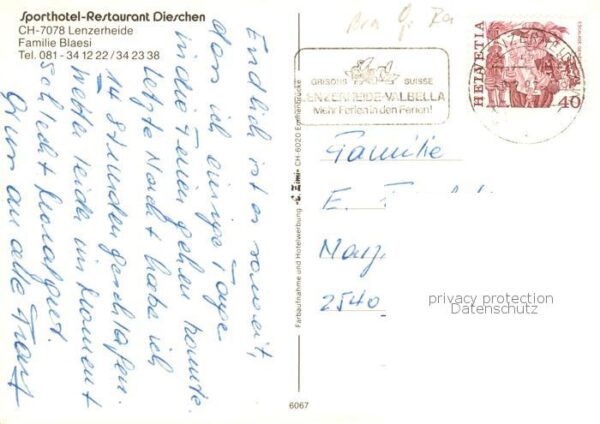 Sporthotel-Restaurant Dieschen
CH-7078 Lenzerheide
Familie Blaesi
Tel. 081 - 34 12 22 / 34 23 38
Endlich ist es soweit,
dass ich einige Tage
in die Ferien gehen konnte.
Letzte Nacht habe ich
14 Stunden geschlafen.
Wetter leider im Moment
schlecht
Gruss an alle
GRISONS SUISSE
LENZERHEIDE-VALBELLA
Mehr Ferien in den Ferien!
HELVETIA
40
Familie
E.
2540
privacy protection
Datenschutz
Farbaufnahme und Hotelwerbung CH-6020 Emmenbrücke
6067